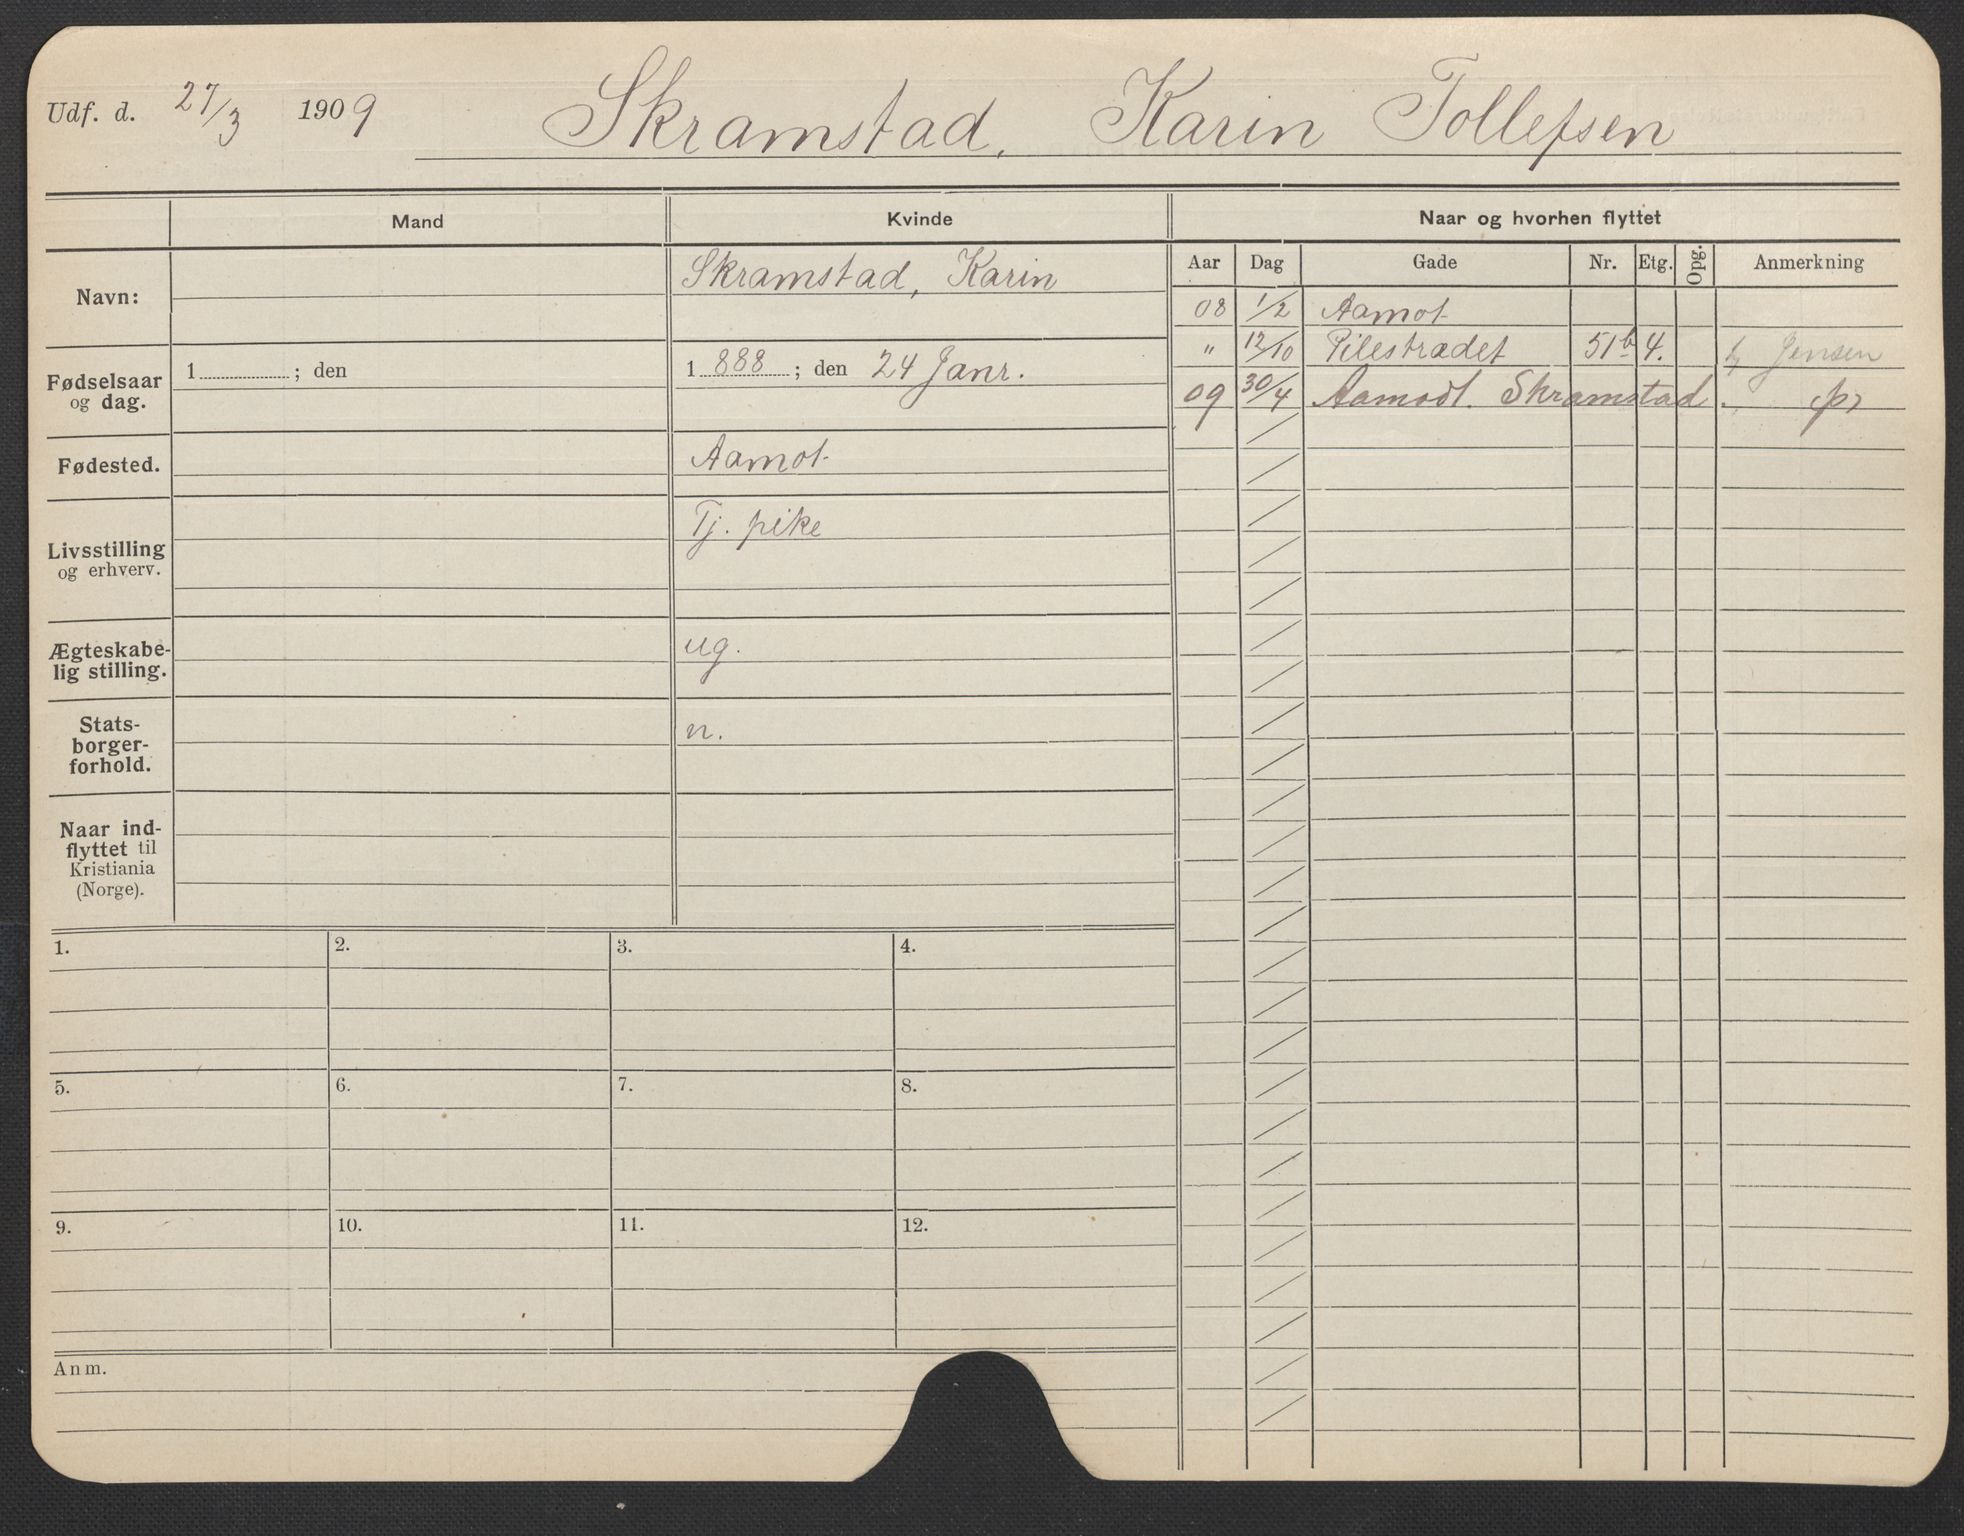 Udf. d. 27/3 1909 Skramstad, Karin Tollefsen
Mand Kvinde Naar og hvorhen flyttet
Aar Dag Gade Nr. Etg. Opg. Anmerkning
Navn: Skramstad, Karin
08 1/2 Aamot
" 12/10 Pilestrædet 51b 4. Jensen
09 30/4 Aamodt. Skramstad.
Fødselsaar
og dag.
1 ; den
1 888 ; den 24 Janr.
Fødested. Aamot.
Livsstilling
og erhverv.
Tj. pike
Ægteskabe-
lig stilling.
ug.
Stats-
borger-
forhold.
n.
Naar ind-
flyttet til
Kristiania
(Norge).
1. 2. 3. 4.
5. 6. 7. 8.
9. 10. 11. 12.
Anm.